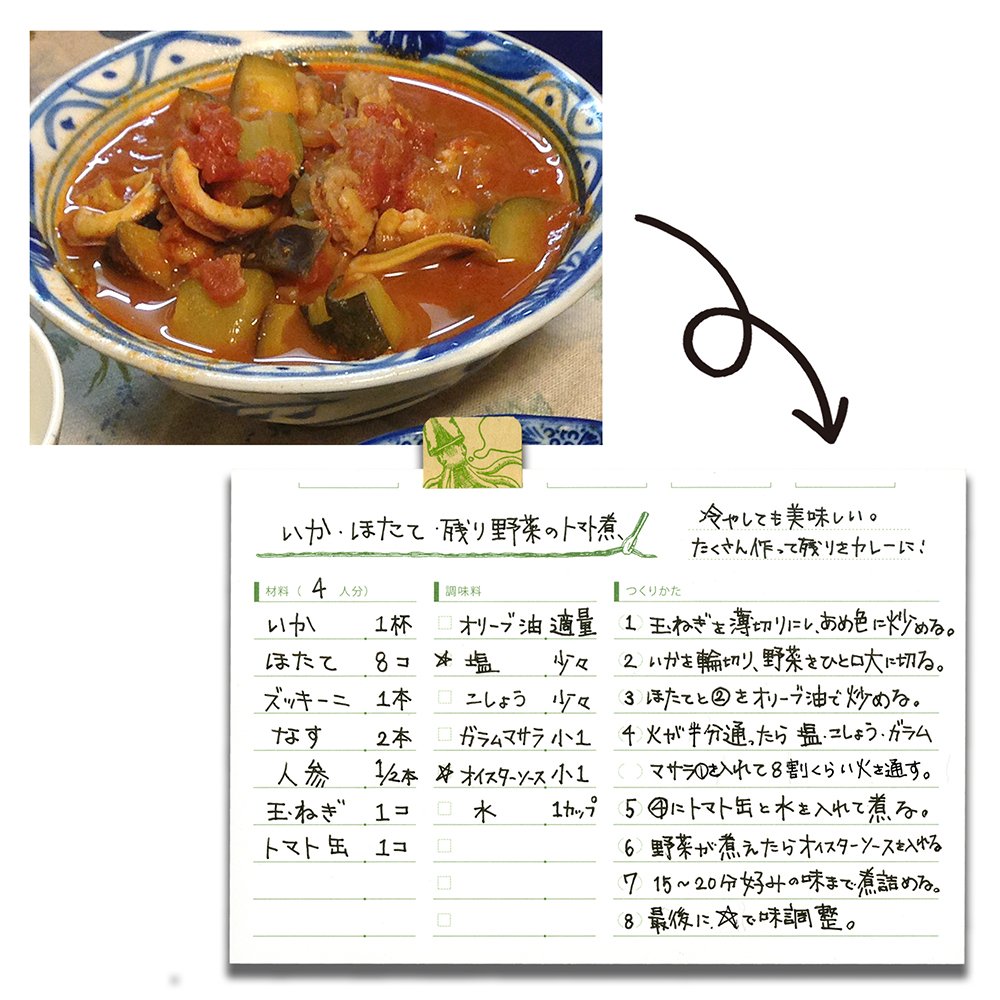 いか・ほたて・残り野菜のトマト煮
冷やしても美味しい。
たくさん作って残りをカレーに!
材料(4人分)
いか 1杯
ほたて 8コ
ズッキーニ 1本
なす 2本
人参 1/2本
玉ねぎ 1コ
トマト缶 1コ
調味料
オリーブ油 適量
☆塩 少々
こしょう 少々
ガラムマサラ 小1
☆オイスターソース 小1
水 1カップ
つくりかた
1 玉ねぎを薄切りにし、あめ色に炒める。
2 いかを輪切り、野菜をひと口大に切る。
3 ほたてと②をオリーブ油で炒める。
4 火が半分通ったら塩・こしょう・ガラム
マサラ①を入れて8割くらい火を通す。
5 ④にトマト缶と水を入れて煮る。
6 野菜が煮えたらオイスターソースを入れる
7 15〜20分好みの味まで煮詰める。
8 最後に、☆で味調整。